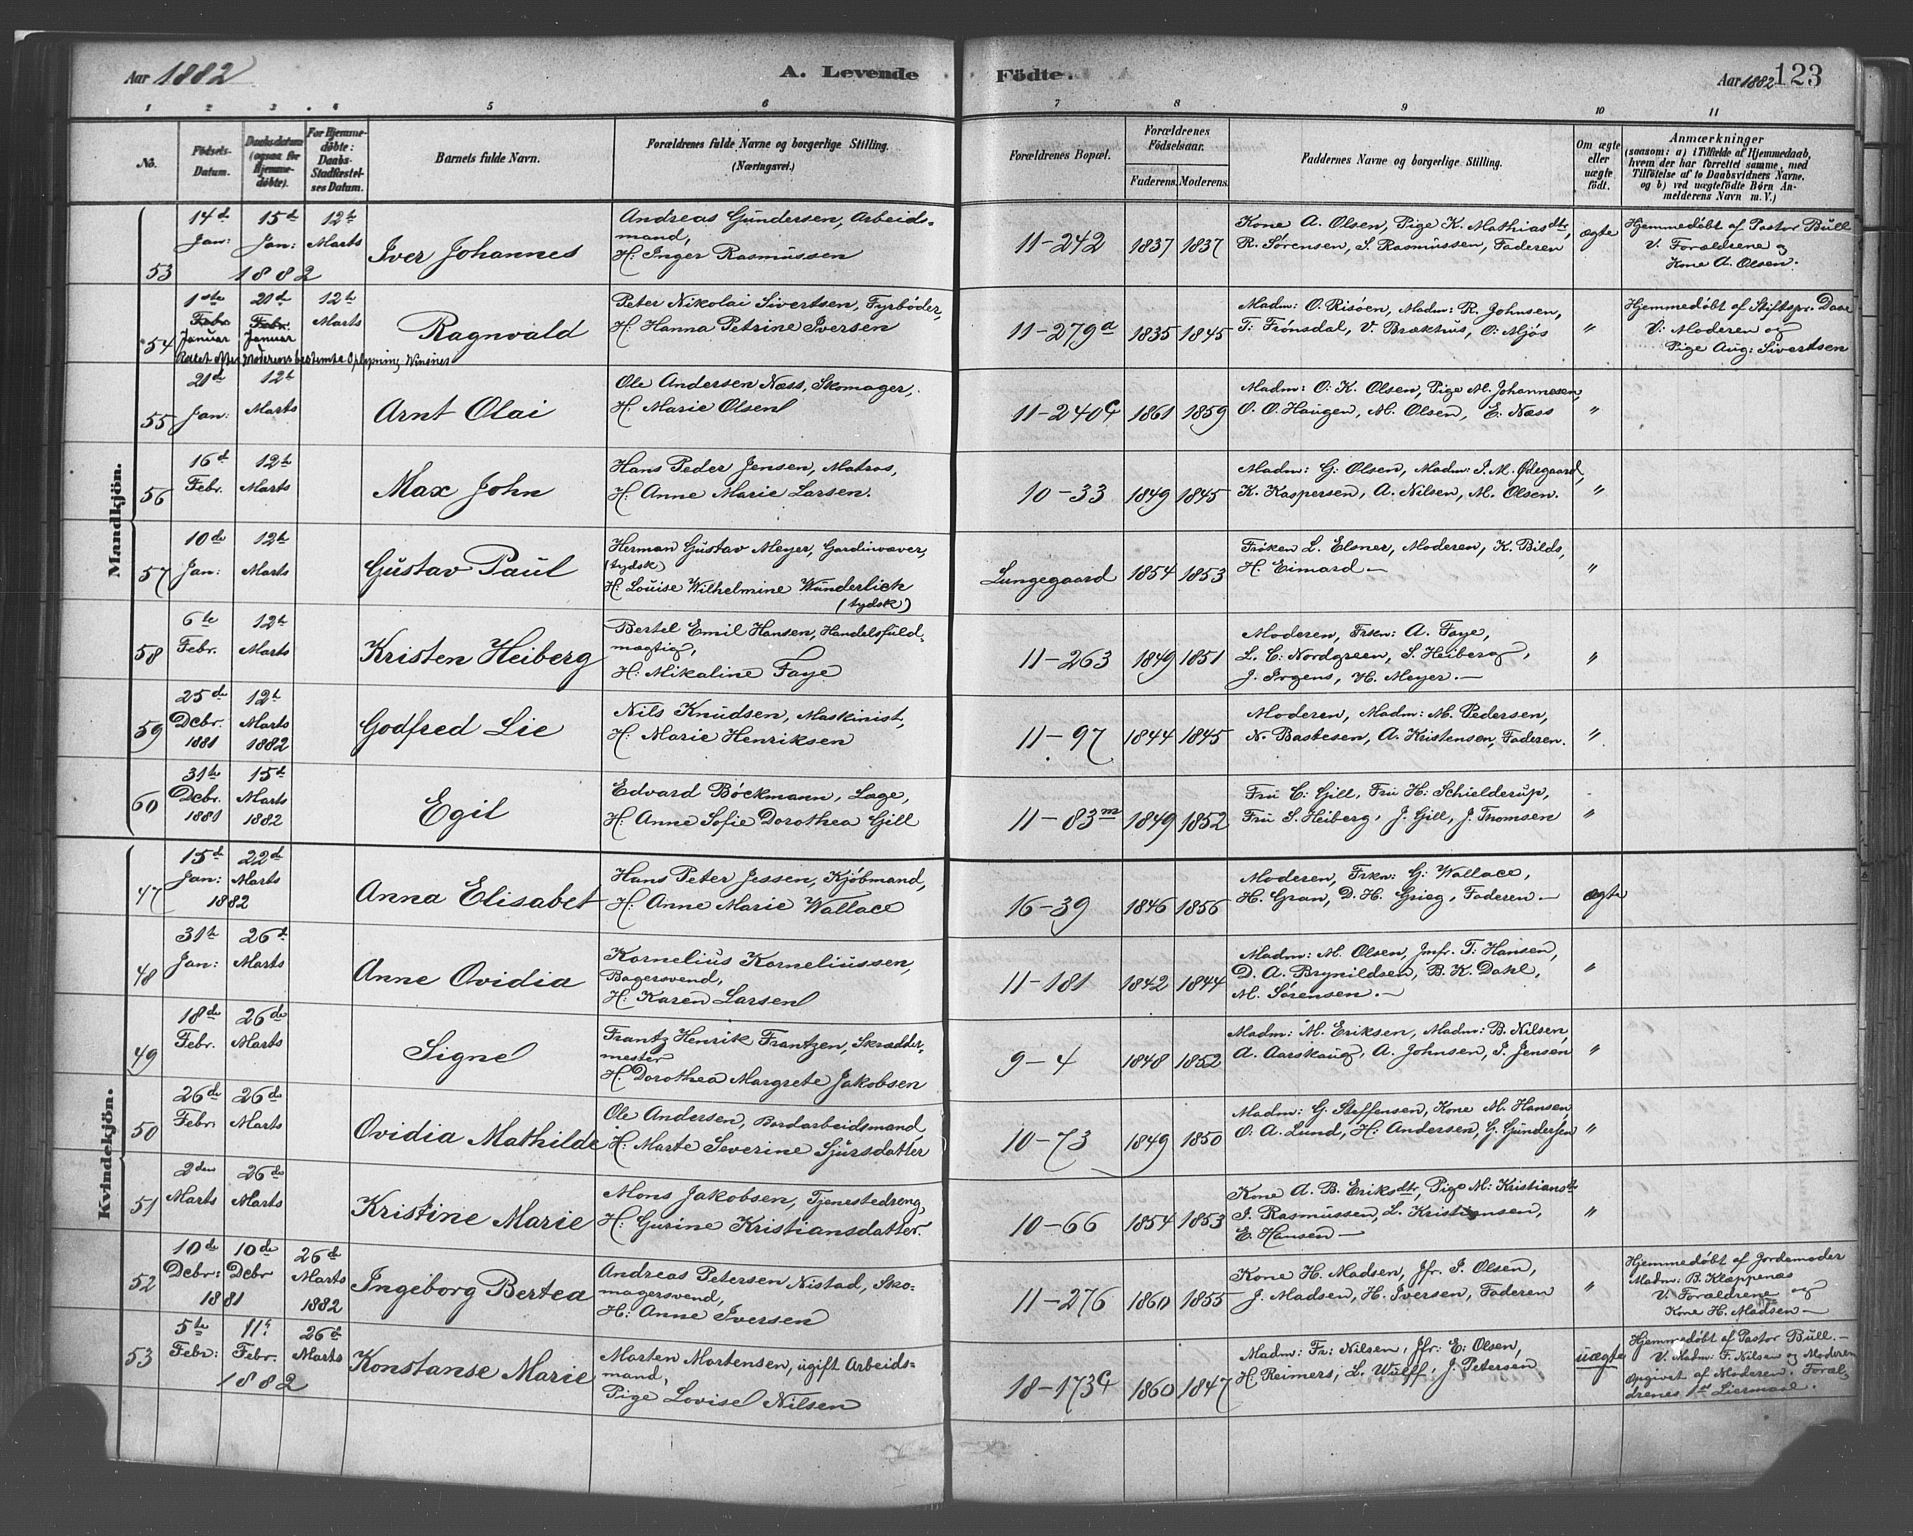 Aar 1882 A. Levende Födte. Aar 1882 123
1 2 3 4 5 6 7 8 9 10 11
No. Födsels-Datum. Daabsdatum (ogsaa for Hjemmedöbte). For Hjemmedöbte: Daabs-Stadfæstelses Datum. Barnets fulde Navn. Forældrenes fulde Navne og borgerlige Stilling. (Næringsvei.) Forældrenes Bopæl. Forældrenes Födselsaar. Faderens. Moderens. Faddernes Navne og borgerlige Stilling. Om ægte eller uægte födt. Anmærkninger (saasom: a) i Tilfælde af Hjemmedaab, hvem der har forrettet samme, med Tilföielse af to Daabsvidners Navne. og b) ved uægtefödte Börn Anmelderens Navn m. V.)
Mandkjön.
53 14d Jan: 15d Jan: 1882 12te Marts Iver Johannes
Andreas Gundersen, Arbeidsmand,
H: Inger Rasmussen
11-242 1837 1837
Kone A. Olsen, Pige K. Mathiasdtr,
R. Sørensen, S. Rasmussen, Faderen
ægte
Hjemmedøbt af Pastor Bull
V. Forældrene og
Kone A. Olsen.
54 1ste Febr. Januar 20d Febr. Januar 12te Marts Ragnvald
Rettet efter Moderens bestemte Oplysning
Peter Nikolai Sivertsen, Fyrbøder,
H: Hanna Petrine Iversen
11-279a 1835 1845
Madm: O. Risöen, Madm: R. Johnsen,
T: Frønsdal, V. Brækhus, O: Mjøs
"
Hjemmedøbt af Stiftspr. Daae
V: Moderen og
Pige Aug: Sivertsen
55 21de Jan: 12te Marts Arnt Olai
Ole Andersen Næss, Skomager,
H: Marie Olsen
11-240c 1861 1859
Madm: O. K. Olsen, Pige M. Johannesen,
O. O. Haugen, M. Olsen, E. Næss
"
56 16d Febr. 12te Marts Max John
Hans Peder Jensen, Matros,
H: Anne Marie Larsen.
10-33 1849 1845
Madm: G: Olsen, Madm: J. M. Ødegaard,
K. Kaspersen, A. Nilsen, M. Olsen.
"
57 10de Jan: 12te Marts Gustav Paul
Herman Gustav Meyer, Gardinvæver,
(tydsk)
H: Louise Wilhelmine Wunderlich
(tydsk)
Lungegaard 1854 1853
Frøken L. Elsner, Moderen, K. Bilds,
H. Eimard —
"
58 6te Febr. 12te Marts Kristen Heiberg
Bertel Emil Hansen, Handelsfuldmægtig,
H: Mikaline Faye
11-263 1849 1851
Moderen, Frkn: A. Faye,
L. C: Nordgreen, S. Heiberg,
J. Irgens, H. Meyer. —
"
59 25de Dcbr. 1881 12te Marts 1882 Godfred Lie
Nils Knudsen, Maskinist,
H: Marie Henriksen
11-97 1844 1845
Moderen, Madm: M. Pedersen,
N. Bastesen, A. Kristensen, Faderen.
"
60 31te Dcbr. 1881 15d Marts 1882 Egil
Edvard Böckmann, Læge,
H: Anne Sofie Dorothea Gill
11-83m 1849 1852
Fru C: Gill, Fru H: Schielderup,
Fru S. Heiberg, J. Gill, J. Thomsen
"
Kvindekjön.
47 15d Jan: 22d Marts 1882 Anna Elisabet
Hans Peter Jessen, Kjöbmand,
H: Anne Marie Wallace
16-39 1846 1856
Moderen, Frkn: G: Wallace,
H. Gran, D. H. Grieg, Faderen —
ægte
48 31te Jan: 26d Marts Anne Ovidia
Kornelius Korneliussen,
Bagersvend,
H: Karen Larsen
11-181 1842 1844
Madm: M. Olsen, Jmfr. T: Hansen,
D. A. Brynildsen, B. K. Dahl,
M. Sørensen. —
"
49 18de Febr. 26de Marts Signe
Frantz Henrik Frantzen, Skræddermester
H. Dorothea Margrete Jakobsen
9-4 1848 1852
Madm: M. Eriksen, Madm: B. Nilsen,
A. Aarskaug, A. Johnsen, I. Jensen
"
50 26de Febr. 26de Marts Ovidia Mathilde
Ole Andersen, Bordarbeidsmand,
H: Marte Severine Sjursdatter
10-73 1849 1850
Madm: G. Steffensen, Kone M. Hansen,
O. A. Lund, H: Andersen, G. Gundersen
"
51 2den Marts 26de Marts Kristine Marie
Mons Jakobsen, Tjenestedreng,
H: Gurine Kristiansdatter.
10-66 1854 1853
Kone A. B. Eriksdtr, Pige M: Kristiansdtr
I. Rasmussen, L. Kristiansen,
E. Hansen —
"
52 10de Dcbr: 10de Dcbr 1881 26d Marts 1882 Ingeborg Bertea
Andreas Petersen Nistad, Skomagersvend,
H: Anne Iversen
11-276 1860 1855
Kone H. Madsen, Jfr. I. Olsen,
J. Madsen, H. Iversen, Faderen
"
Hjemmedøbt af Jordemoder
Madm: B. Kleppenæs
V. Forældrene og
Kone H. Madsen —
53 5te Febr: 11te Febr. 1882 26d Marts Konstanse Marie
Morten Mortensen, ugift Arbeidsmand,
Pige Lovise Nilsen
18-173c 1860 1847
Madm: Fr: Nilsen, Jfr: E: Olsen,
H. Reimers, L. Wulff, J. Petersen
uægte
Hjemmedøbt af Pastor Bull. —
V. Madm: F. Nilsen og Moderen
Opgivet af Moderen. Forældrenes 1ste Leiermaal.